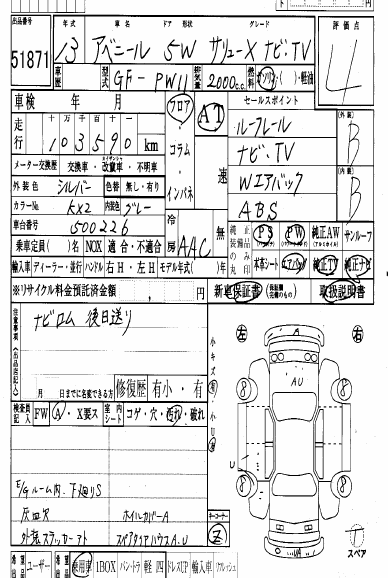 出品番号 年式 車名 ドア 形状 グレード 評価点
51871 13 アベニール 5W サリューX ナビ,TV 4
車歴 型式 GF-PW11 排気量 2000c.c. 燃料 ガソリン・( )・軽油
車検 年 月 フロア AT セールスポイント
走行 十万 千 百 十 一 コラム ルーフレール 外装 B
103590 km ナビ,TV
メーター交換歴 交換車・改ザン車・不明車 インパネ 速 Wエアバック 内装 B
外装色 シルバー 色替 無し・有り ABS
カラーNo. KX2 内装色 グレー 冷房 AAC 無
車台番号 500226 純正装備品のみ丸印 PS PW 純正AW サンルーフ
乗車定員( )名 NOX 適合・不適合 本革シート エアバッグ 純正TV 純正ナビ
輸入車 ディーラー・並行 ハンドル 右H・左H モデル年式( )年
※リサイクル料金預託済金額 , 円 新車保証書 取扱説明書
注意事項(出品店記入) ナビロム 後日送り
月 日までに名変できる方 修復歴 有小・有
検査員記入 FW A・X要ス 室内シート コゲ・穴・汚れ・破れ
E/Gルーム内・下廻りS
灰皿欠 ホイルカバーA
外装ステッカーアト スペアタイヤハウスA,U
左 右
AU
8 8
8 8
U
UA
コーナー Z スペア
ユーザー 乗用車 1BOX バントラ 軽四 ドレスUP 輸入車 リフレッシュ